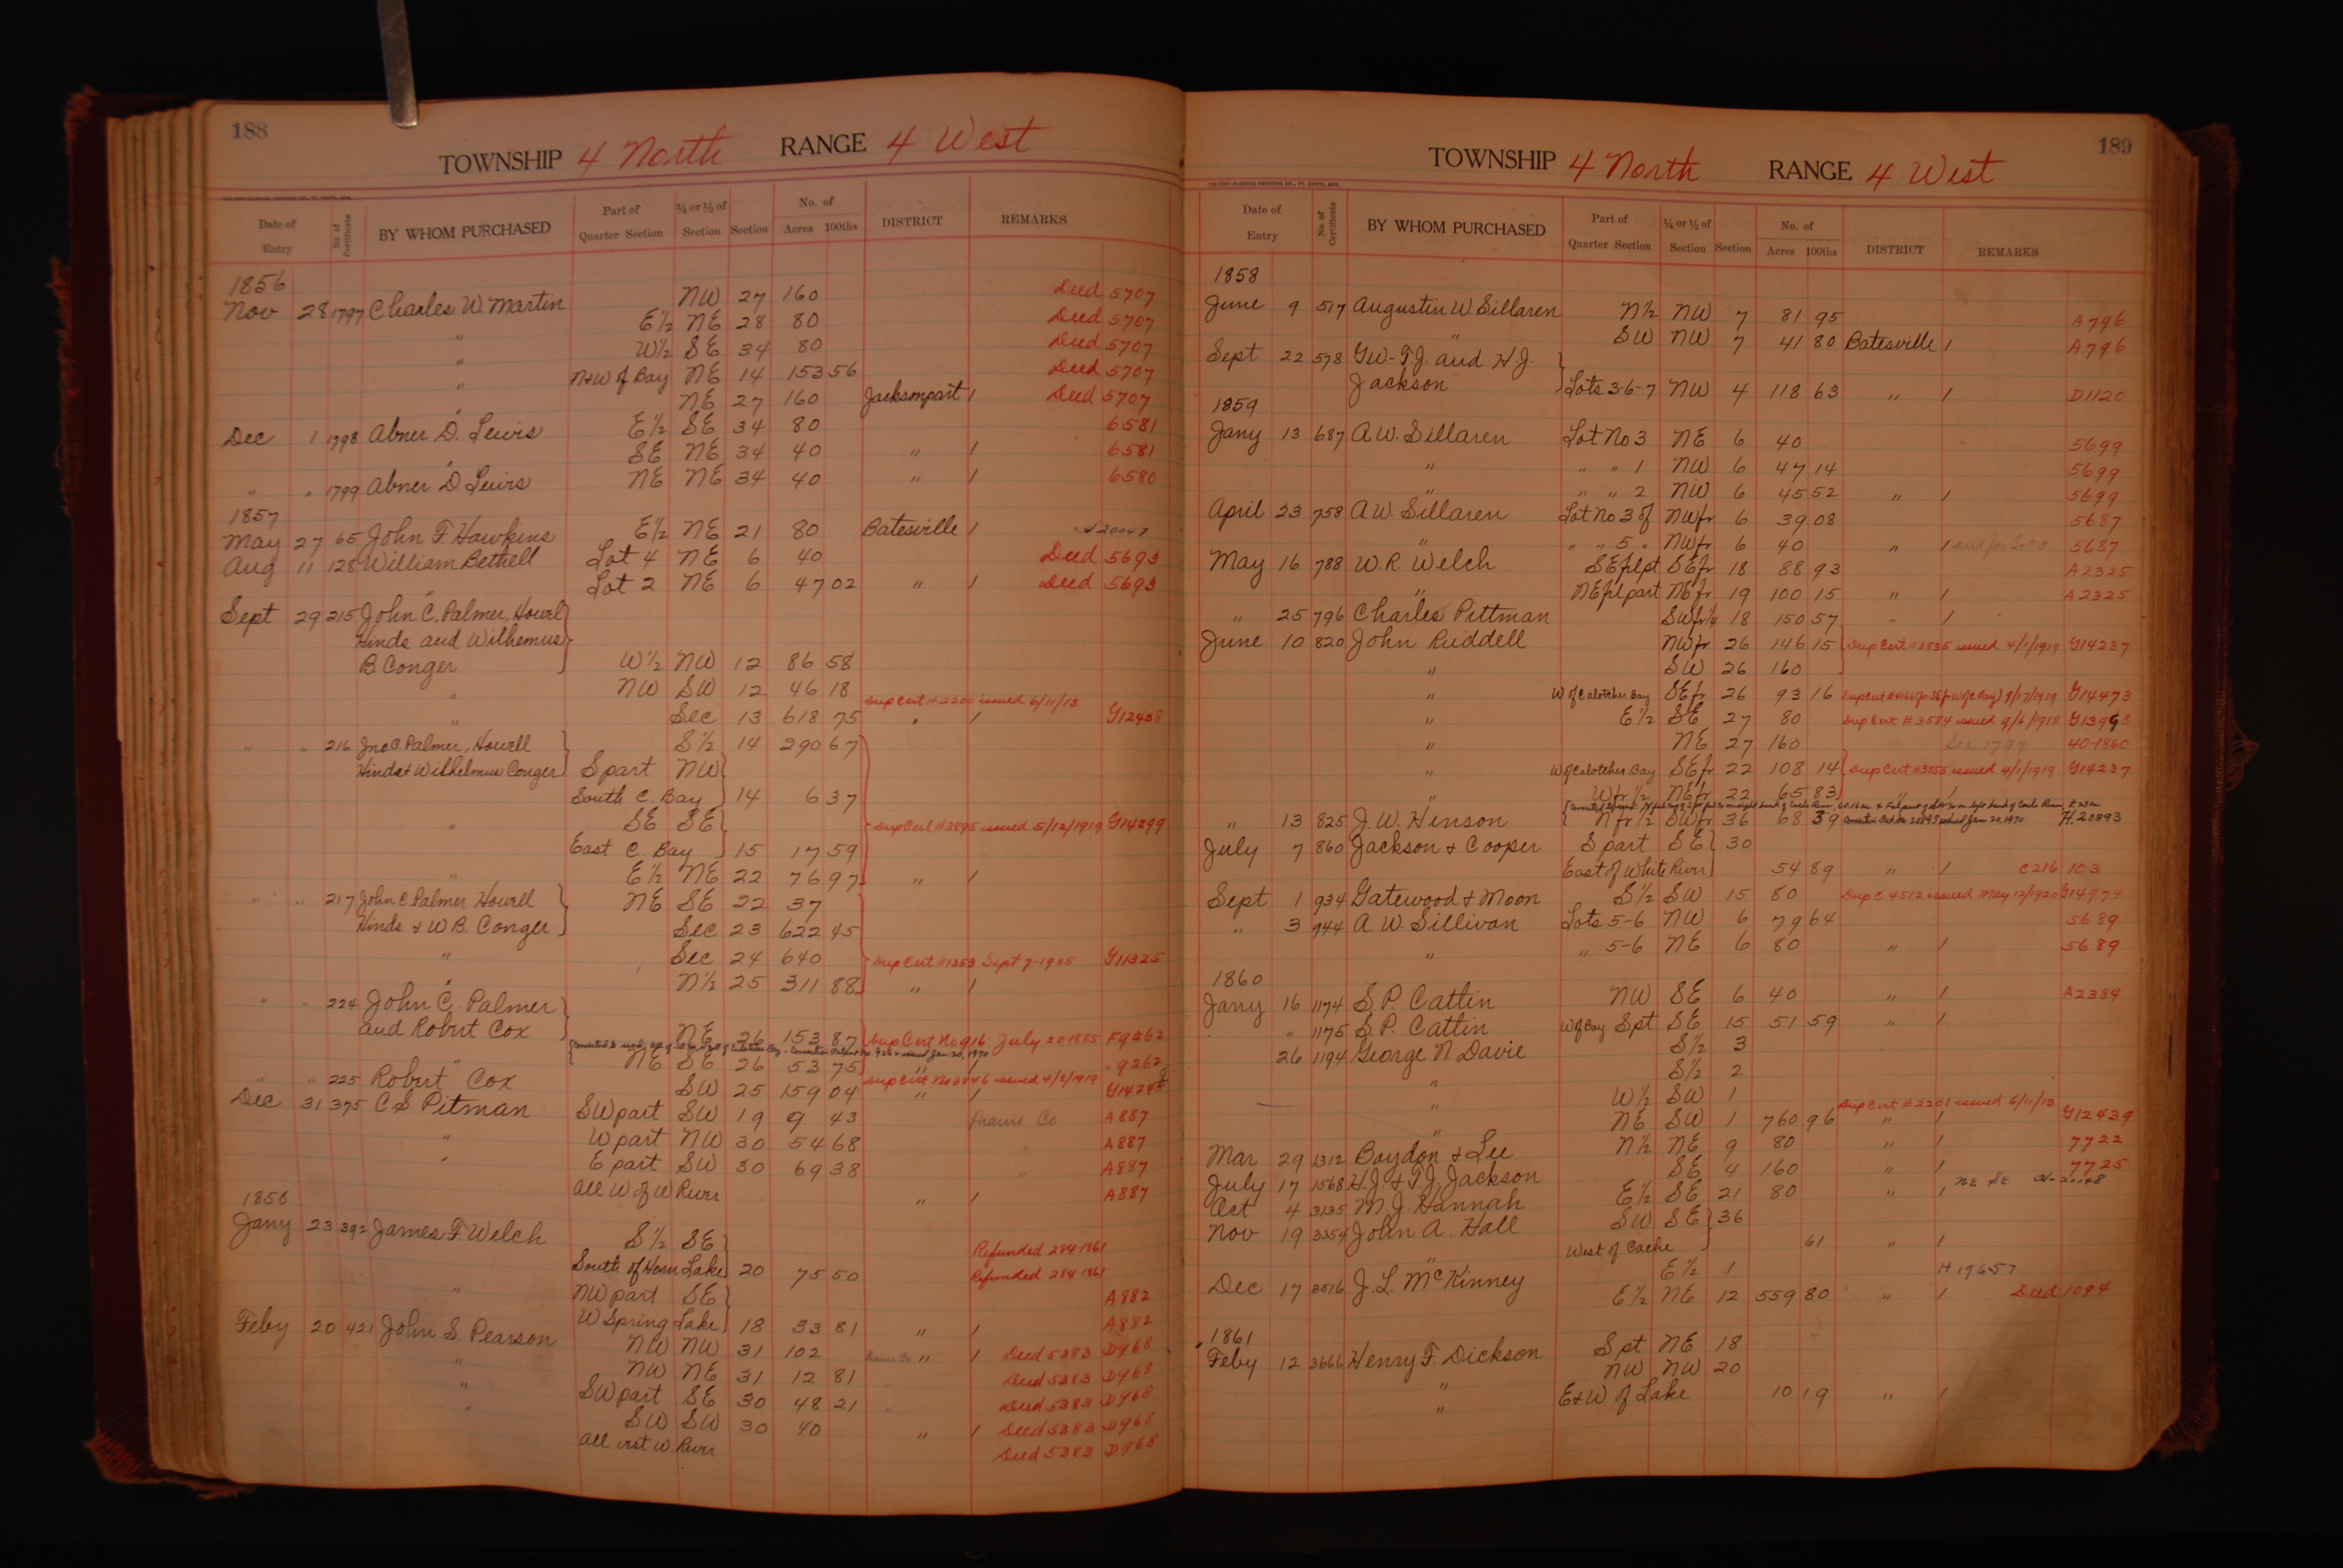 188
TOWNSHIP 4 North RANGE 4 West
Date of Entry No. of Certificate BY WHOM PURCHASED Part of Quarter Section ¼ or ½ of Section Section No. of Acres 100ths DISTRICT REMARKS
1856
Nov 28 1797 Charles W. Martin NW 27 160 Deed 5707
" E½ NE 28 80 Deed 5707
" W½ SE 34 80 Deed 5707
" N+W of Bay NE 14 153 56 Deed 5707
" NE 27 160 Jacksonport / Deed 5707
Dec 1 1798 Abner D. Lewis E½ SE 34 80 6581
" SE NE 34 40 " / 6581
" " 1799 Abner D. Lewis NE NE 34 40 " / 6580
1857
May 27 65 John F Hawkins E½ NE 21 80 Batesville / 20047
Aug 11 128 William Bethell Lot 4 NE 6 40 Deed 5693
" Lot 2 NE 6 47 02 " / Deed 5693
Sept 29 215 John C. Palmer, Howel
Hinds and Wilhemus
B. Conger W½ NW 12 86 58
" NW SW 12 46 18
Dup Cert # 2200 issued 6/11/13
" Sec 13 618 75 " / G12438
" " 216 Jno C. Palmer, Howell S½ 14 290 67
Hinds + Wilhelmus Conger S part NW
South C. Bay 14 6 37
" SE SE Dup Cert # 3895 issued 5/12/1919 G14299
East C. Bay 15 17 59
" E½ NE 22 76 97 " /
" " 217 John C Palmer Howell NE SE 22 37
Hinds + W B. Conger Sec 23 622 45
" Sec 24 640 Dup Cert #1353 Sept 7-1905 G11325
" N½ 25 311 88 " /
" " 224 John C. Palmer
and Robert Cox NE 26 153 87 Dup Cert No 916 July 20 1885 F9262
" NE SE 26 53 75 " / " 9262
" " 225 Robert Cox SW 25 159 04 " /
Dec 31 375 C. S. Pitman SW part SW 19 9 43 Prairie Co A887
" W part NW 30 54 68 " A887
" E part SW 30 69 38 " A887
All W of W River " / A887
Jany 23 392 James F Welch S½ SE
Refunded 284 1861
South of Horn Lake 20 75 50 Refunded 284 1861
" NW part SE A882
W Spring Lake 18 33 81 " / A882
Feby 20 421 John S. Pearson NW NW 31 102 " / Deed 5383 D968
" NW NE 31 12 81 Deed 5383 D968
" SW part SE 30 48 21 " Deed 5383 D968
" SW SW 30 40 " / Deed 5383 D968
All W. River Deed 5383 D968
189
TOWNSHIP 4 North RANGE 4 West
Date of Entry No. of Certificate BY WHOM PURCHASED Part of Quarter Section ¼ or ½ of Section Section No. of Acres 100ths DISTRICT REMARKS
1858
June 9 517 Augustin W Sillaren N½ NW 7 81 95 A796
" SW NW 7 41 80 Batesville / A796
Sept 22 578 G.W - T.J. and H.J.
Jackson Lots 3-6-7 NW 4 118 63 " / D1120
1859
Jany 13 687 A.W. Sillaren Lot No 3 NE 6 40 5699
" " " 1 NW 6 47 14 5699
" " " 2 NW 6 45 52 " / 5699
April 23 758 A.W. Sillaren Lot No 3 of NWfr 6 39 08 5687
" " " 5 " NWfr 6 40 " / and for Lot 5 5687
May 16 788 W.R. Welch SE frl pt SEfr 18 88 93 A2325
" NE frl part NEfr 19 100 15 " / A2325
" 25 796 Charles Pittman SWfr¼ 18 150 57 " /
June 10 820 John Ruddell NWfr 26 146 15 Dup Cert # 3835 issued 4/1/1919 G14237
" SW 26 160
" W of Calotcher Bay SEfr 26 93 16 G14473
" E½ SE 27 80 Dup Cert. # 3584 issued 9/6/1918 G13993
" NE 27 160 See 1797 40-1860
" W of Calotcher Bay SEfr 22 108 14 Dup Cert #3855 issued 4/1/1919 G14237
" Wfr½ NEfr 22 65 83 " /
" 13 825 J.W. Henson Nfr½ SWfr 36 68 39 Correction Cert. No. 20893 issued Jan 20, 1970 H.20893
July 7 860 Jackson + Cooper S part SE 30
East of White River 54 89 " / C216 103
Sept 1 934 Gatewood + Moon S½ SW 15 80 Dup C 4512 issued May 17/1920 G14974
" 3 944 A. W. Sillivan Lots 5-6 NW 6 79 64 5689
" " 5-6 NE 6 80 " / 5689
1860
Jany 16 1174 S. P. Catlin NW SE 6 40 " / A2384
" 1175 S. P. Catlin W of Bay Spt SE 15 51 59 " /
26 1194 George N. Davie S½ 3
" S½ 2
" W½ SW 1
Dup Cert # 2201 issued 6/11/13
" NE SW 1 760 96 " / G12439
Mar 29 1312 Boydon + Lee N½ NE 9 80 " / 7722
July 17 1568 H.J. + T.J. Jackson SE 4 160 " / 7725
Oct 4 3135 M.J. Hannah E½ SE 21 80 " / NE SE
Nov 19 3354 John A. Hall SW SE 36
West of Cache 61 " /
" E½ 1 H 19657
Dec 17 3516 J. L. McKinney E½ NE 12 559 80 " / Deed 1094
1861
Feby 12 3666 Henry F. Dickson Spt NE 18
" NW NW 20
" E+W of Lake 10 19 " /